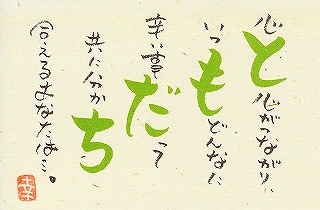 心と心がつながり、
いつもどんなに
辛い事だって
共に分かち
合えるあなたは…。